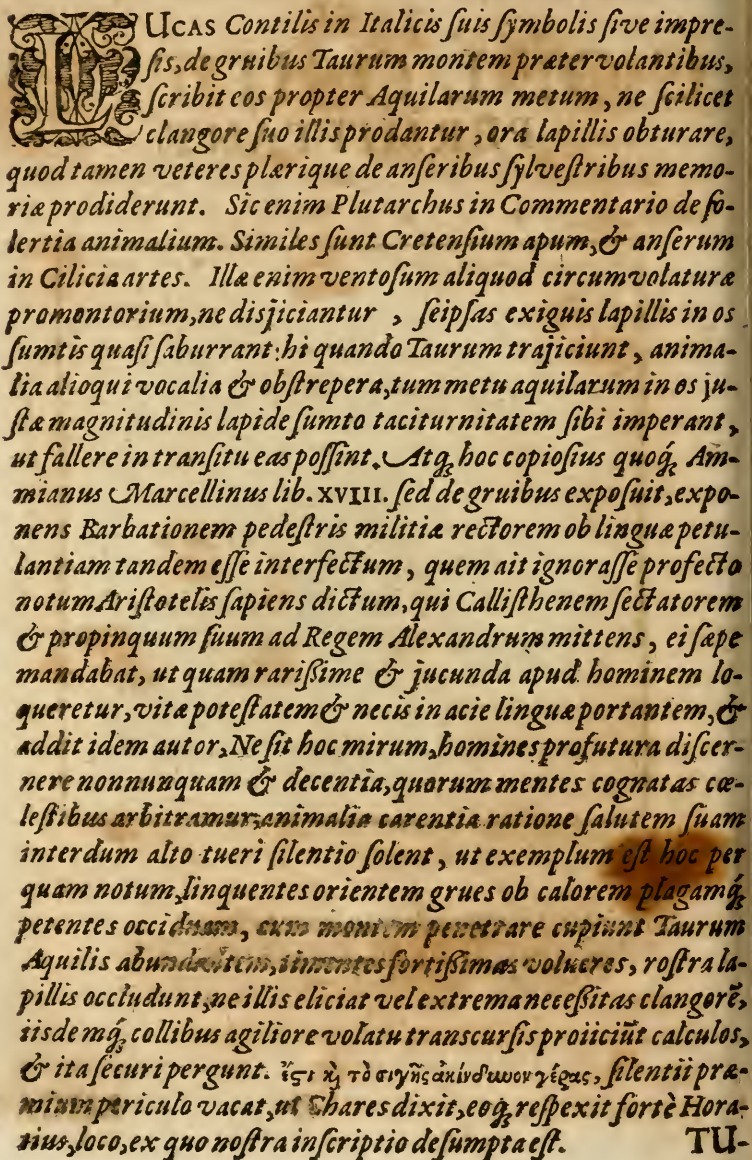 LUCAS Contilis in Italicis suis symbolis sive impre-
sis, de gruibus Taurum montem prætervolantibus,
scribit eos propter Aquilarum metum, ne scilicet
clangore suo illis prodantur, ora lapillis obturare,
quod tamen veteres plærique de anseribus sylvestribus memo-
riæ prodiderunt. Sic enim Plutarchus in Commentario de so-
lertia animalium. Similes sunt Cretensium apum, & anserum
in Cilicia artes. Illæ enim ventosum aliquod circumvolaturæ
promontorium, ne disjiciantur, seipsas exiguis lapillis in os
sumtis quasi saburrant: hi quando Taurum trajiciunt, anima-
lia alioqui vocalia & obstrepera, tum metu aquilarum in os ju-
stæ magnitudinis lapide sumto taciturnitatem sibi imperant,
ut fallere in transitu eas possint. Atq; hoc copiosius quoq; Am-
mianus Marcellinus lib. XVIII. sed de gruibus exposuit, expo-
nens Barbationem pedestris militiæ rectorem ob linguæ petu-
lantiam tandem esse interfectum, quem ait ignorasse profecto
notum Aristotelis sapiens dictum, qui Callisthenem sectatorem
& propinquum suum ad Regem Alexandrum mittens, ei sæpe
mandabat, ut quam rarissime & jucunda apud hominem lo-
queretur, vitæ potestatem & necis in acie linguæ portantem, &
addit idem autor, Ne sit hoc mirum, homines profutura discer-
nere nonnunquam & decentia, quorum mentes cognatas cœ-
lestibus arbitramur, animalia carentia ratione salutem suam
interdum alto tueri silentio solent, ut exemplum est hoc per
quam notum, linquentes orientem grues ob calorem plagamq;
petentes occiduam, cum montem penetrare cupiunt Taurum
Aquilis abundantem, timentes fortissimas volucres, rostra la-
pillis occludunt, ne illis eliciat vel extrema necessitas clangorē,
iisdemq; collibus agiliore volatu transcursis proiiciūt calculos,
& ita securi pergunt. ἔστι καὶ τὸ σιγῆς ἀκίνδυνον γέρας, silentii præ-
mium periculo vacat, ut Chares dixit, eoq; respexit fortè Hora-
tius, loco, ex quo nostra inscriptio desumpta est. TU-